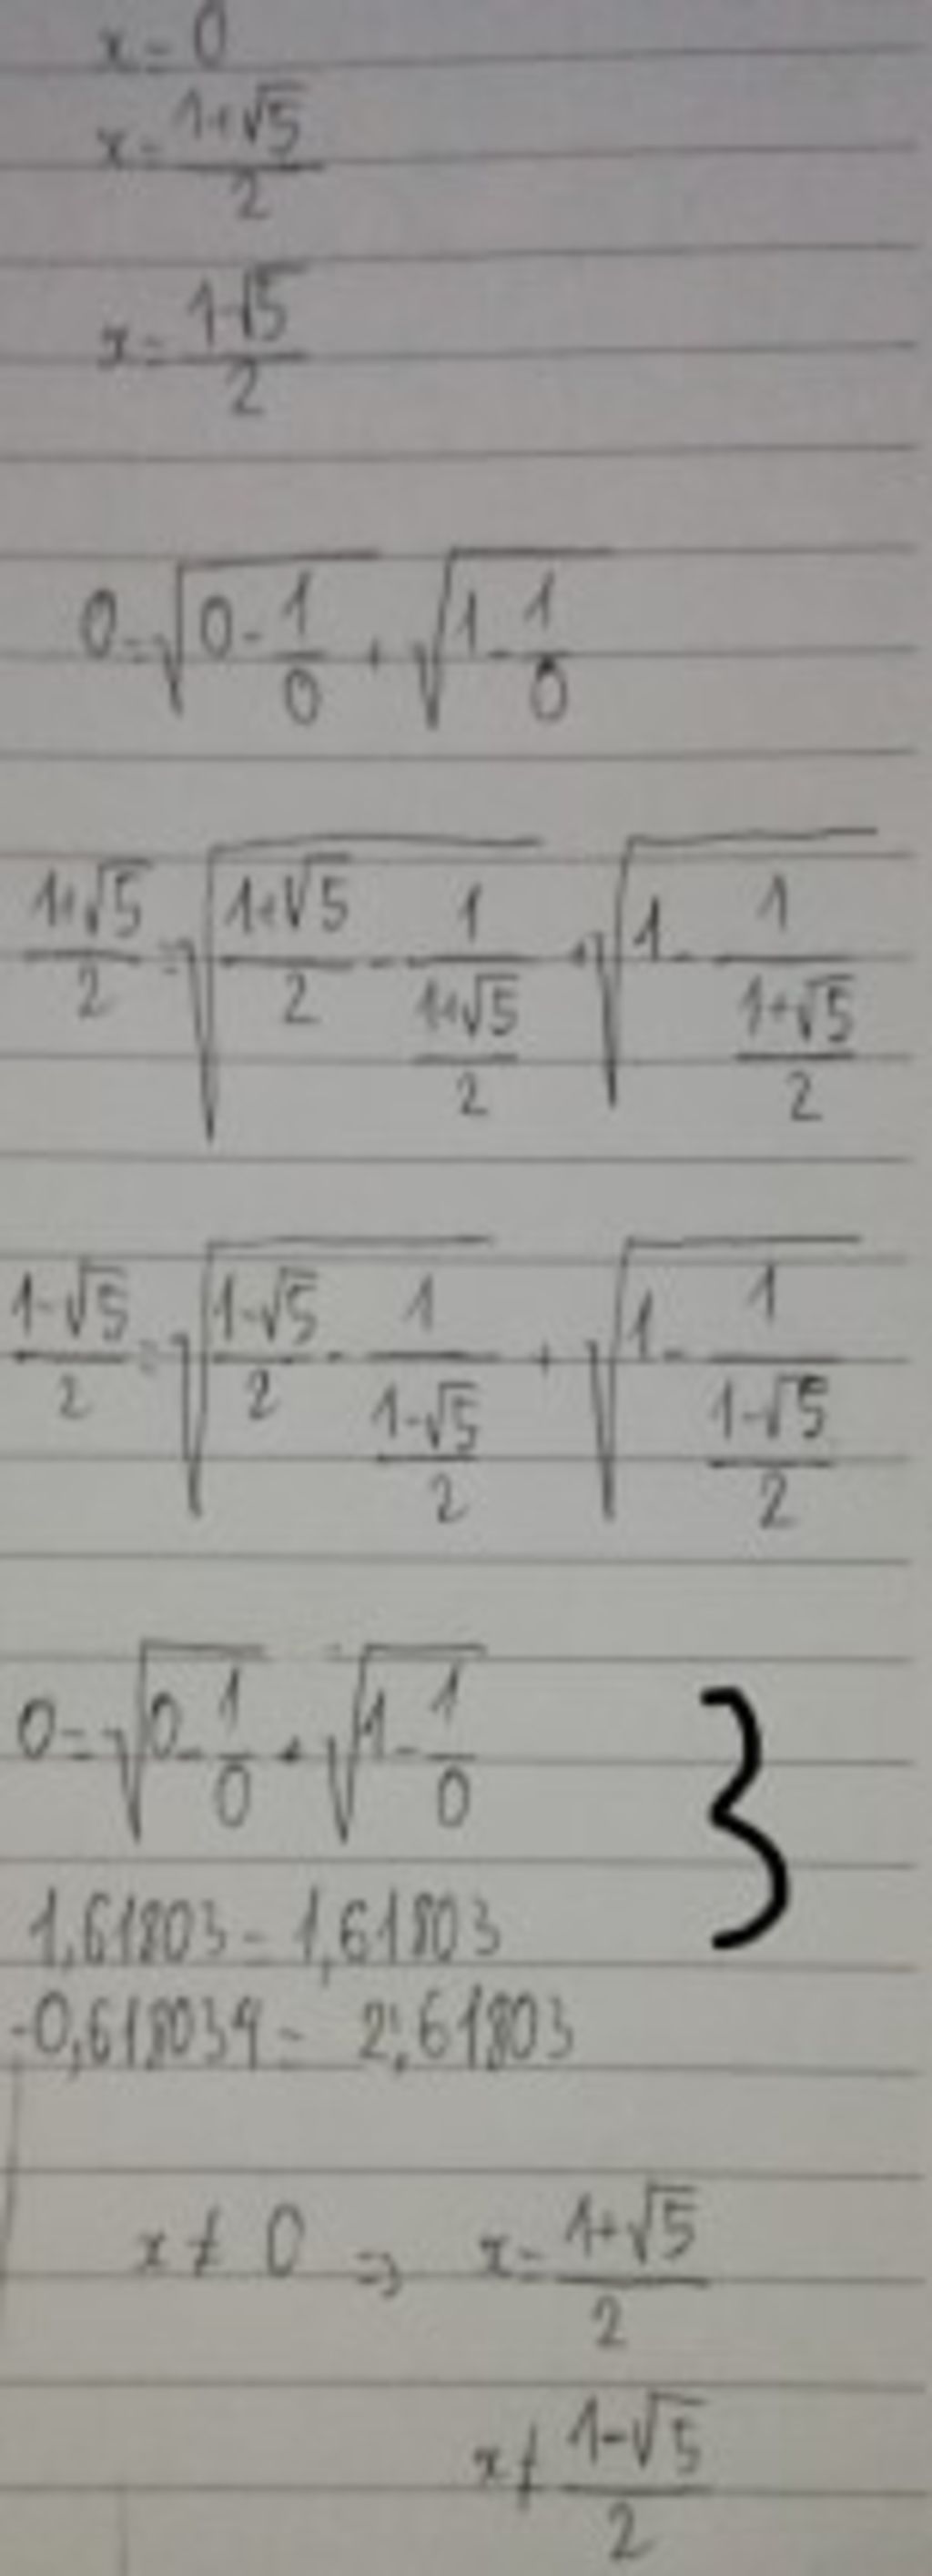 x = 0
x = (1+√5)/2
x = (1-√5)/2
0 = √(0 - 1/0) + √(1 - 1/0)
(1+√5)/2 = √((1+√5)/2 - 1/((1+√5)/2)) + √(1 - 1/((1+√5)/2))
(1-√5)/2 = √((1-√5)/2 - 1/((1-√5)/2)) + √(1 - 1/((1-√5)/2))
0 = √(0 - 1/0) + √(1 - 1/0) }
1,61803 = 1,61803
-0,618034 = 2,61803
x ≠ 0 ⇒ x = (1+√5)/2
x ≠ (1-√5)/2